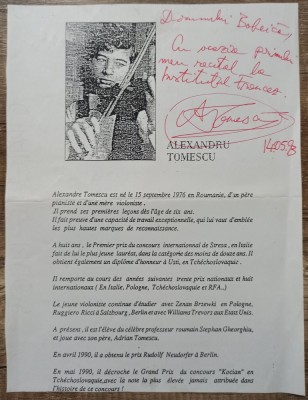 Domnului Bobeică,
Cu ocazia primului
meu recital la
Institutul Francez
ATomescu
14.05.98
ALEXANDRU
TOMESCU
Alexandre Tomescu est né le 15 septembre 1976 en Roumanie, d'un père
pianiste et d'une mère violoniste .
Il prend ses premières leçons dès l'âge de six ans.
Il fait preuve d'une capacité de travail exceptionnelle, qui lui vaut d'emblée
les plus hautes marques de reconnaissance.
A huit ans , le Premier prix du concours international de Stresa, en Italie
fait de lui le plus jeune lauréat, dans la catégorie des moins de douze ans. Il
obtient également un diplôme d'honneur à Usti, en Tchéchoslovaquie .
Il remporte au cours des années suivantes treize prix nationaux et huit
internationaux ( En Italie, Pologne, Tchéchoslovaquie et RFA..)
Le jeune violoniste continue d'étudier avec Zenan Brzewski en Pologne,
Ruggiero Ricci à Salzbourg , Berlin et avec Williams Trevors aux Etats Unis.
A présent , il est l'élève du célèbre professeur roumain Stephan Gheorghiu,
et joue avec son père, Adrian Tomescu.
En avril 1990, il a obtenu le prix Rudolf Neudorfer à Berlin.
En mai 1990, il décroche le Grand Prix du concours "Kocian" en
Tchéchoslovaquie,avec la note la plus élevée jamais attribuée dans
l'histoire de ce concours !